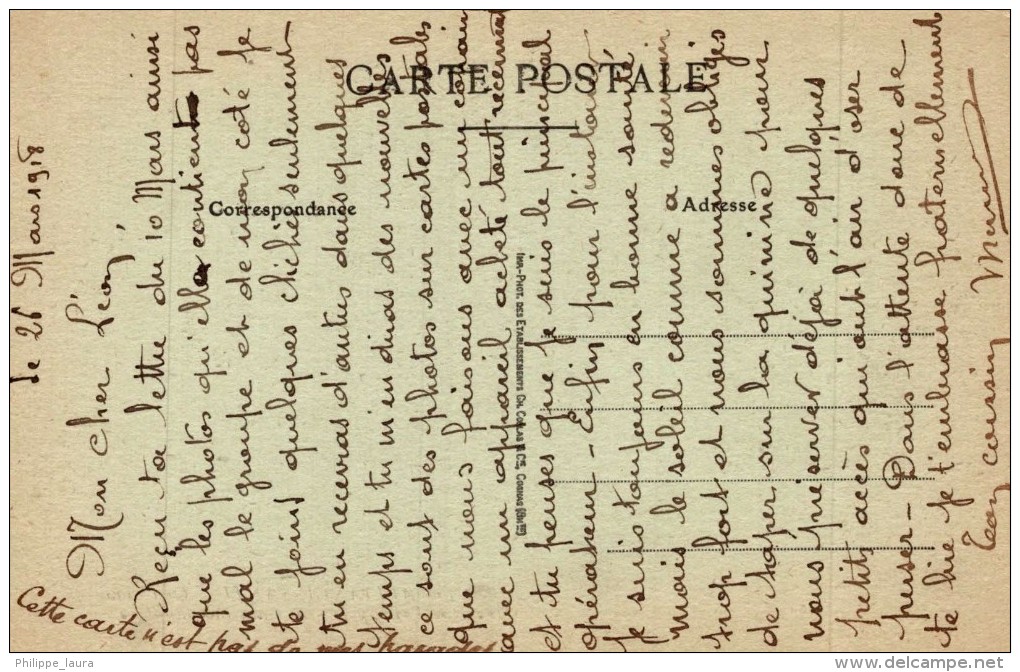 le 26 Mars 1918
Mon cher Léon,
Reçu ta lettre du 10 Mars ainsi
que les photos qu'elle contient pas
mal le groupe et de mon coté je
te joins quelques clichés seulement
tu en recevras d'autres dans quelques
temps et tu m'en diras des nouvelles
ce sont des photos sur cartes postales
que nous faisons avec un copain
avec un appareil acheté tout récemment
et tu penses que je suis le principal
opérateur - Enfin pour l'instant
je suis toujours en bonne santé
mais le soleil comme a redevenir
trop fort et nous sommes obligés
de taper sur la quinine pour
nous préserver déjà de quelques
petits accès qui ont l'air d'oser
percer - Dans l'attente donc de
te lire je t'embrasse fraternellement
Ton cousin
Cette carte n'est pas de mes
CARTE POSTALE
Correspondance
Adresse
IMP.-PHOT. DES ETABLISSEMENTS CH. COLLAS & Cie, COGNAC (Ch te)
Philippe_laura
delcampe.net